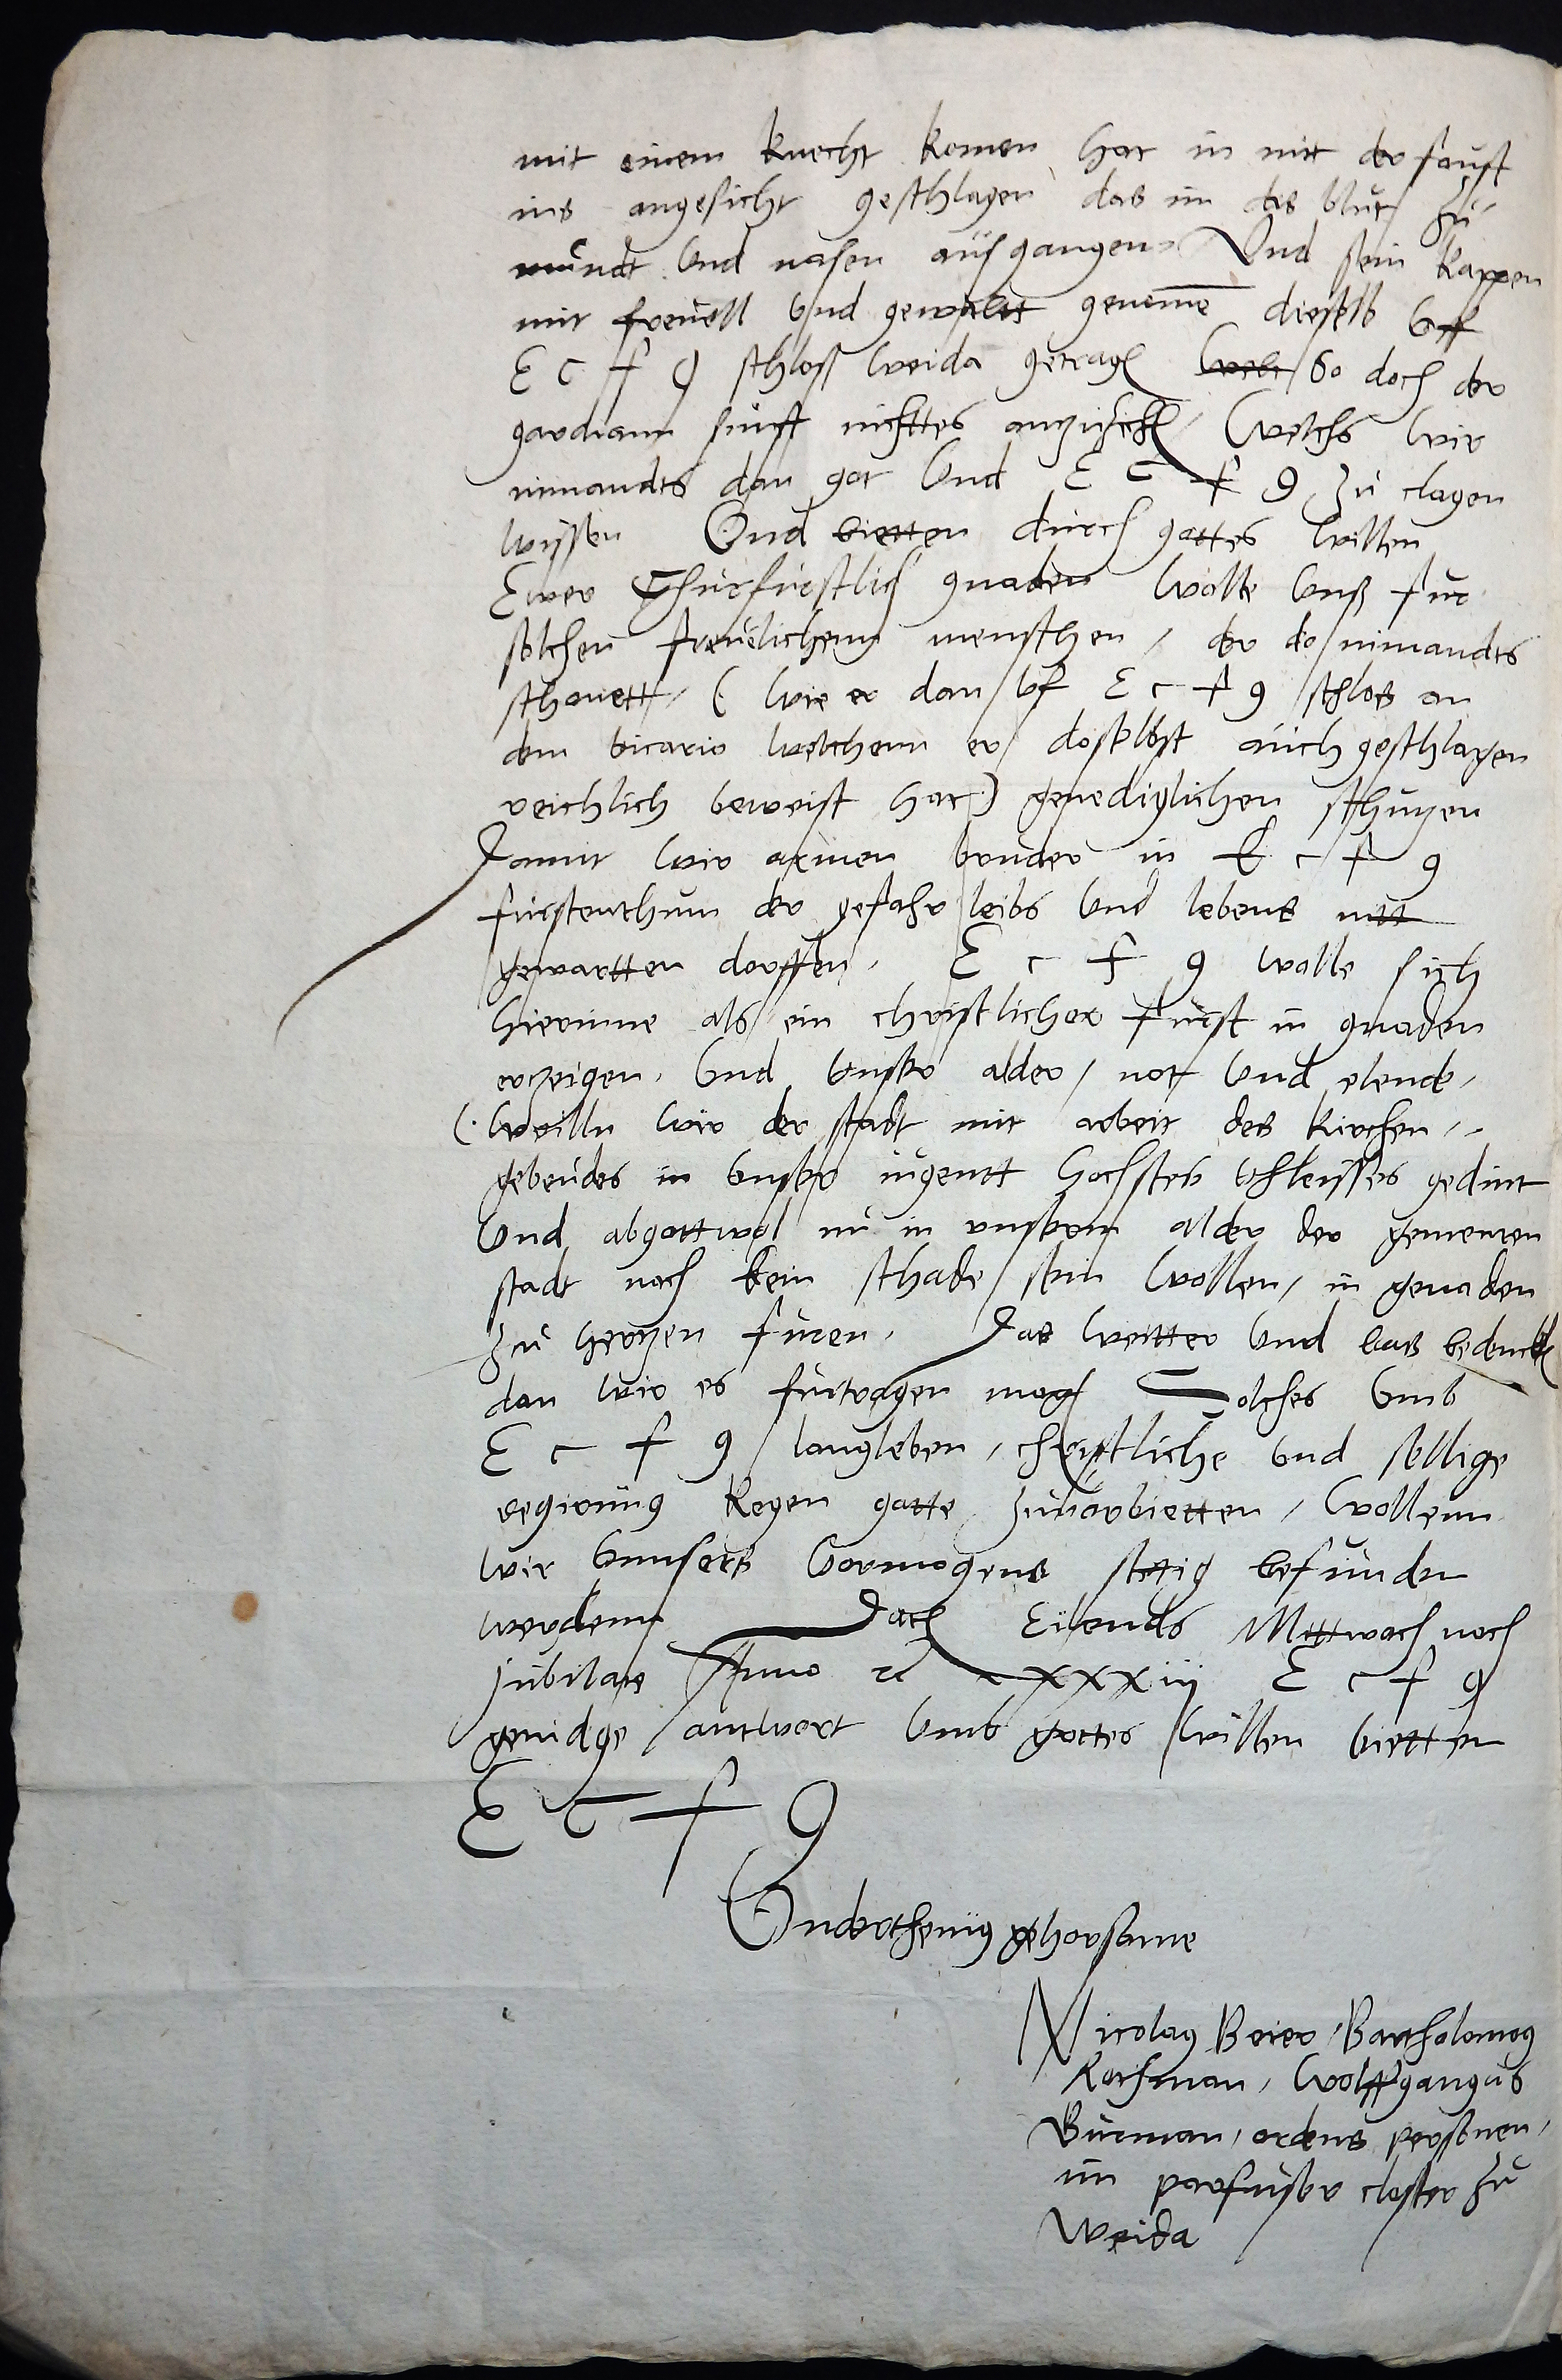 mit einem knecht komen hat in mit der faust
ins angesicht geschlagen das im das blut zu
mundt vnd nasen ausgangen Vnd sein kappen
mit freuell vnd gewaltt genome dieselb vff
E C f g schloß weida getragen so doch der
gardiann sunst nichttes anzuzihen welchs wir
nimandts dan got vnd E C f g zu clagen
wissen Vnd bietten durch gottes willen
Ewer Churfurstlich gnaden wolle vnß fur
solchen freuelichenn menschen / der do nimandts
schonett / ( wie er dan vf E c f g schlos an
dem vicario welchenn er doselbst auch geschlagen
reichlich beweist hat ) genediglichen schutzen
Damit wir armen bruder in E c f g
furstenthum der gefahr leibs vnd lebens nitt
gewartten dorffen / E c f g wolle sich
hierinne als ein christlicher furst in gnaden
erzeigen / vnd vnser alder / not vnd elende /
( weilln wir der stadt mit arbeit des kirchen
gebeudes in vnser iugentt hochstes vhleisses gedint
vnd abgottwol nu in vnserm alder der gemeinen
stadt noch kein schade sein wollen / in genaden
zu hertzen furen / Das weitter vnd bas bedencken
dan wir es furtragen mogen Solches vmb
E c f g langleben / christliche vnd sellige
regirung kegen gotte zuuorbietten / wollenn
wir vnnsers vormogens stetig befunden
werdenn Dat Eilends Mittwoch noch
Jubilate Anno xxxiii E c f g
genidge antwort vmb gottes willen bietten
E C f g
Vnderthenig gehorsame
Nicolaus Beier / Bartholomeus
Kothman / Wolffgangus
Burman / ordens personen /
im parfusser closter zu
Weida